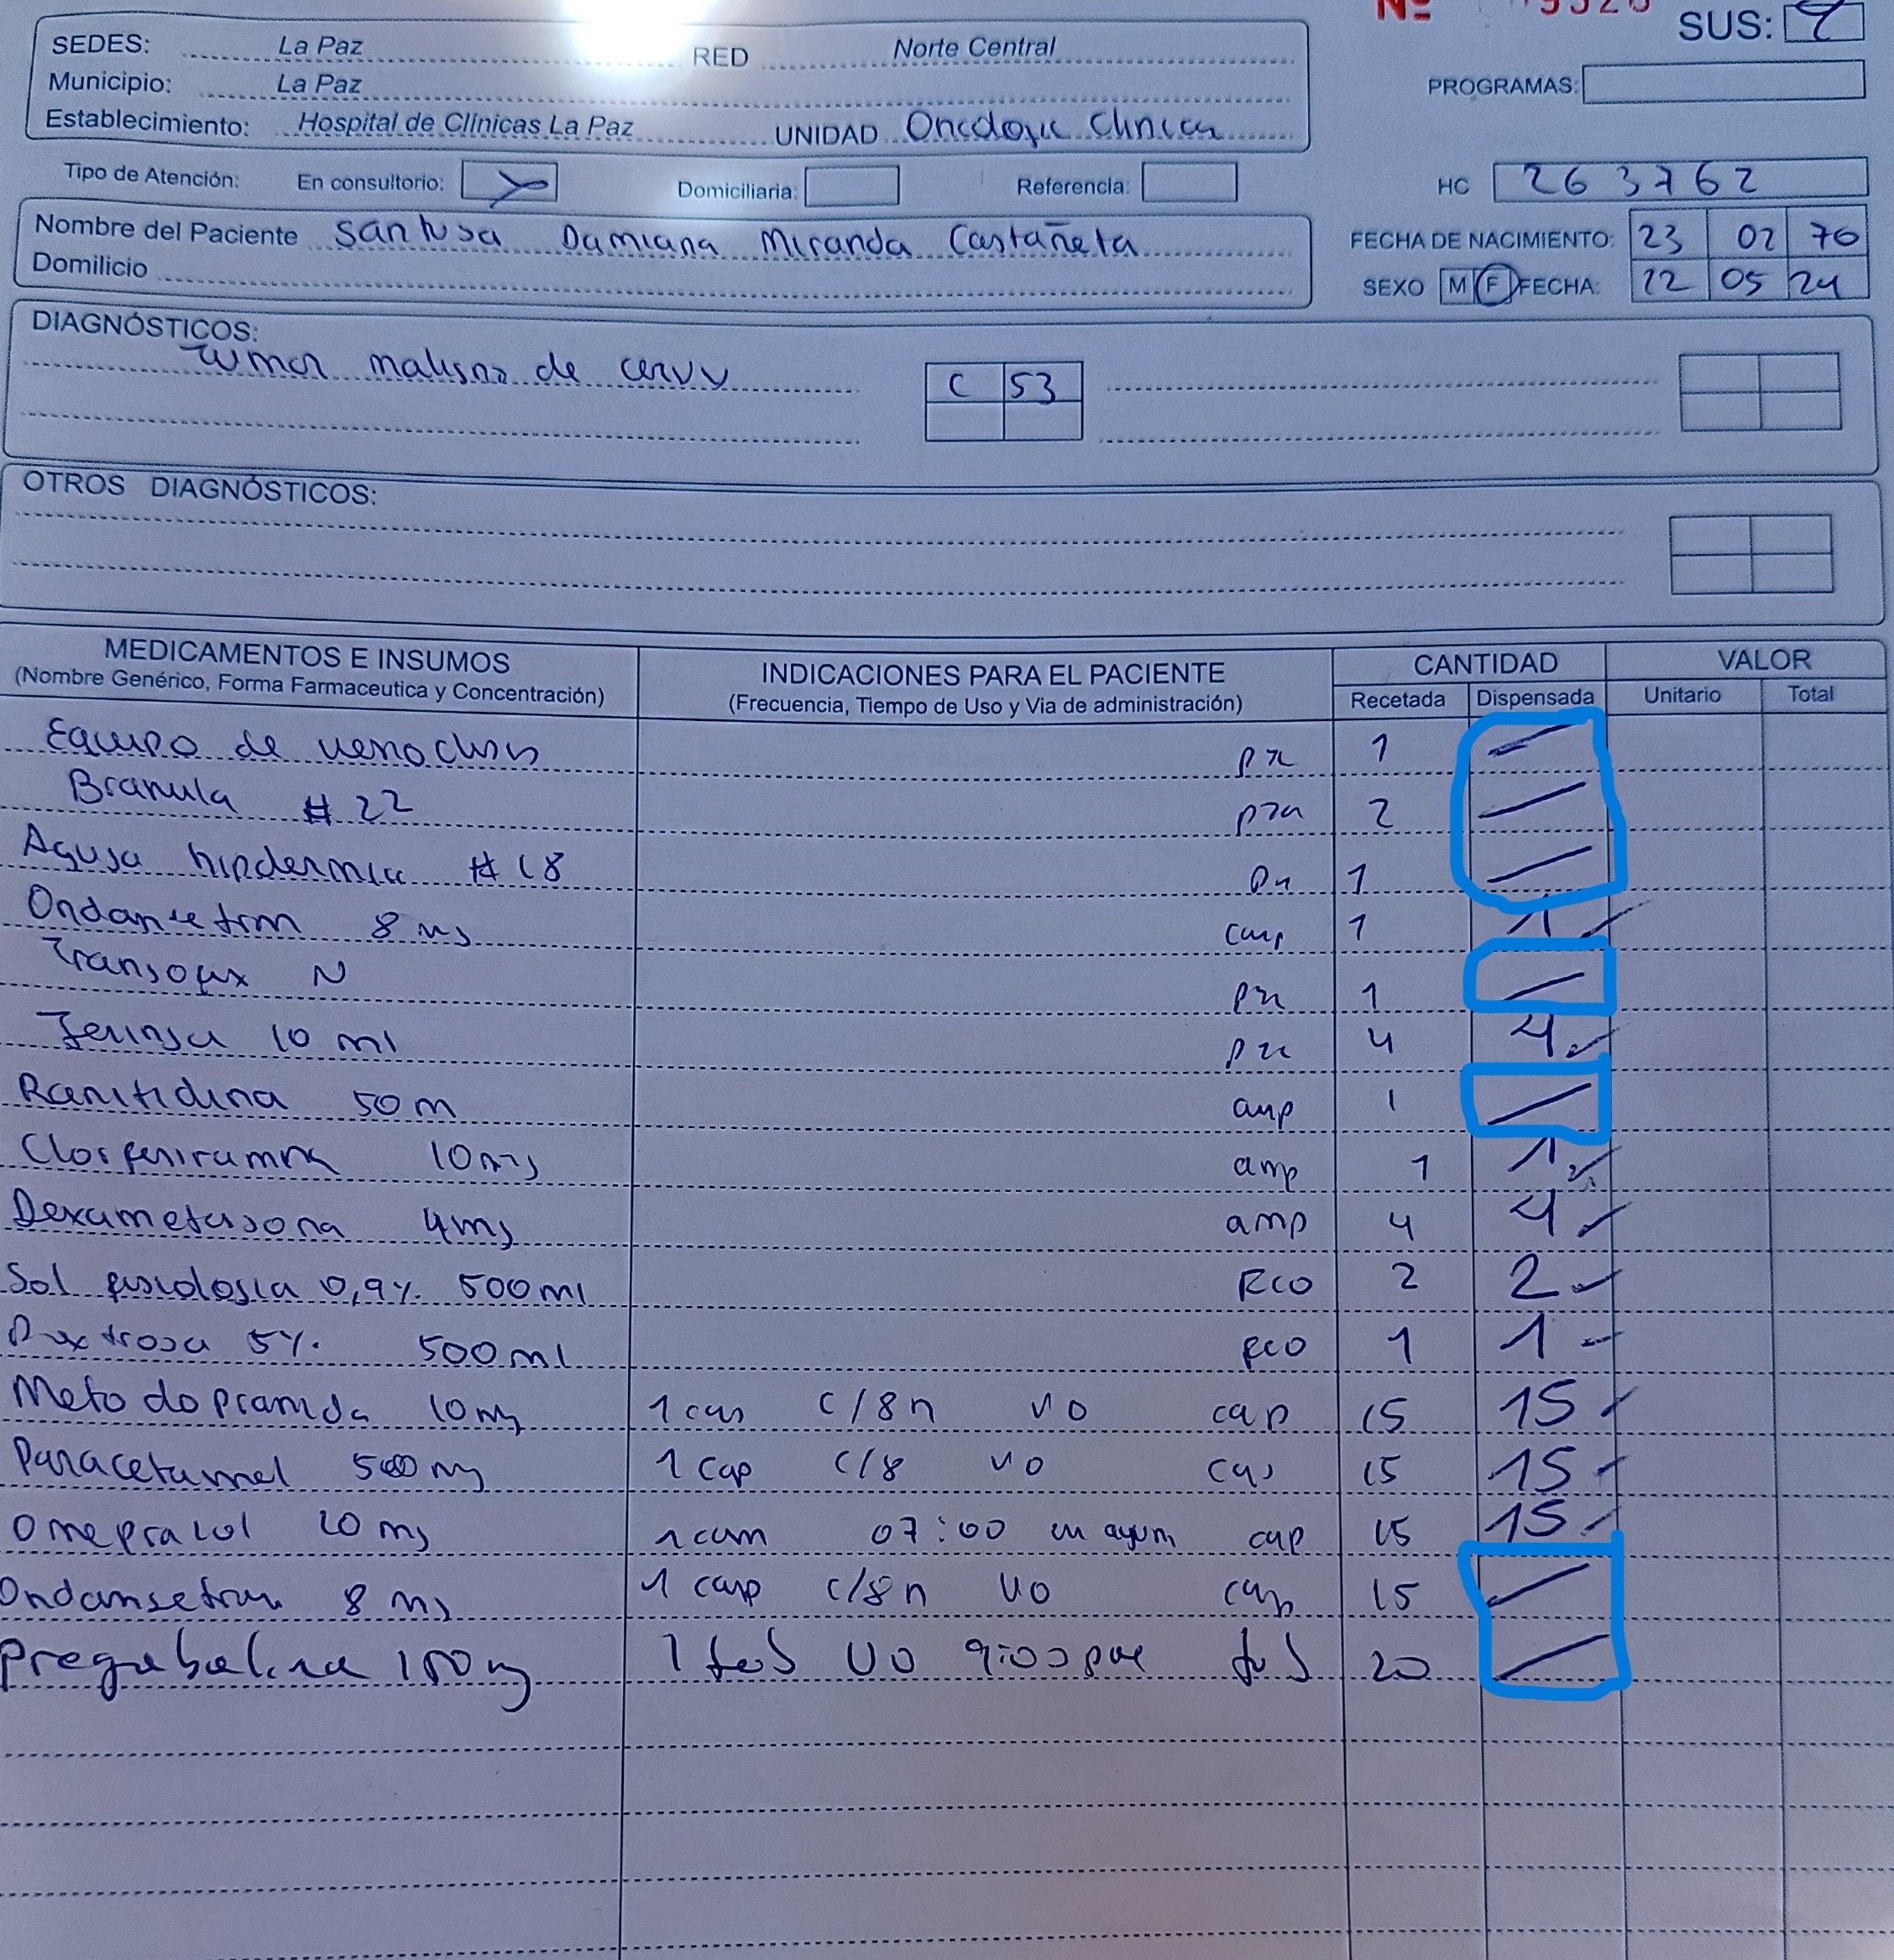 Nº 9520
SUS:
SEDES: La Paz RED Norte Central
PROGRAMAS:
Municipio: La Paz
Establecimiento: Hospital de Clínicas La Paz UNIDAD Oncologia Clinica
Tipo de Atención: En consultorio: Domiciliaria: Referencia: HC 263762
Nombre del Paciente Santusa Damiana Miranda Castañeta
FECHA DE NACIMIENTO: 23 02 70
Domilicio
SEXO M F FECHA: 22 05 24
DIAGNÓSTICOS:
Tumor maligno de cervix C 53
OTROS DIAGNÓSTICOS:
MEDICAMENTOS E INSUMOS INDICACIONES PARA EL PACIENTE CANTIDAD VALOR
(Nombre Genérico, Forma Farmaceutica y Concentración) (Frecuencia, Tiempo de Uso y Via de administración) Recetada Dispensada Unitario Total
Equipo de venoclisis pza 1
Branula #22 pza 2
Aguja hipdermica #18 pza 1
Ondansetron 8 mg amp 1 1
Transofix N pza 1
Jeringa 10 ml pza 4 4
Ranitidina 50 m amp 1
Clorfeniramina 10mg amp 1 1
Dexametasona 4mg amp 4 4
Sol fisiologia 0,9% 500ml Fco 2 2
Dextrosa 5% 500ml fco 1 1
Metoclopramida 10mg 1 cap c/8h VO cap 15 15
Paracetamol 500 mg 1 cap c/8 VO cap 15 15
Omeprazol 20 mg 1 cap 07:00 en ayuna cap 15 15
Ondansetron 8 mg 1 cap c/8h VO cap 15
Pregabalina 150mg 1 tab VO 9:00 tab 20